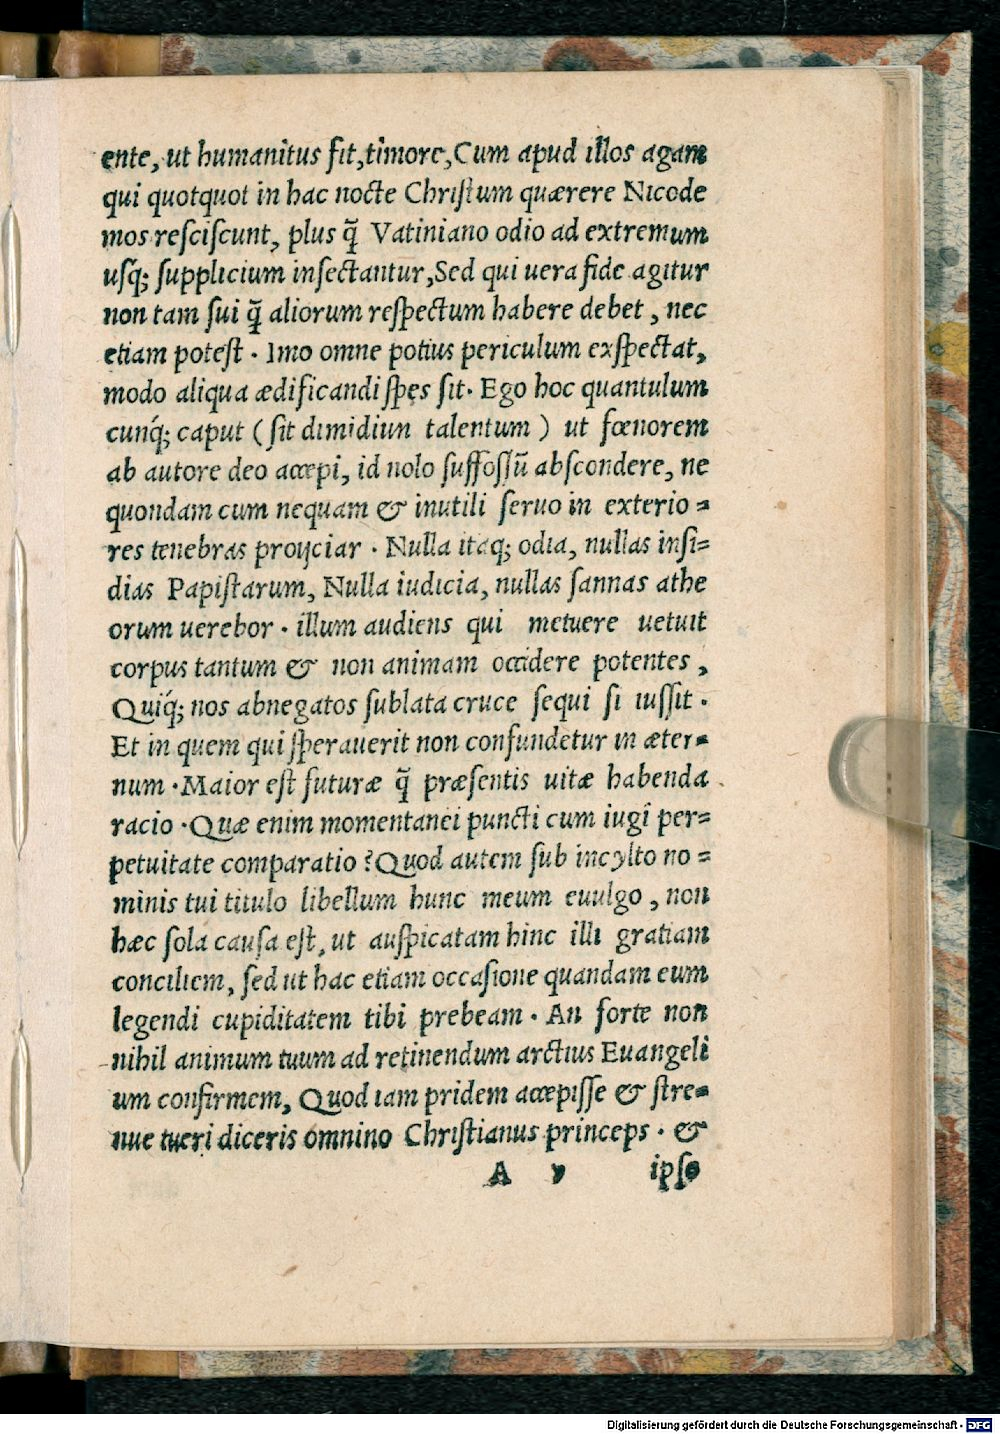 ente, ut humanitus fit, timore, Cum apud illos agam
qui quotquot in hac nocte Christum quærere Nicode
mos resciscunt, plus q̃ Vatiniano odio ad extremum
usq; supplicium insectantur, Sed qui uera fide agitur
non tam sui q̃ aliorum respectum habere debet, nec
etiam potest. Imo omne potius periculum exspectat,
modo aliqua ædificandi spes sit. Ego hoc quantulum
cunq́; caput (sit dimidiun talentum) ut fœnorem
ab autore deo accepi, id nolo suffossū abscondere, ne
quondam cum nequam & inutili seruo in exterio=
res tenebras proijciar. Nulla itaq; odia, nullas insi=
dias Papistarum, Nulla iudicia, nullas sannas athe
orum uerebor. illum audiens qui metuere uetuit
corpus tantum & non animam occidere potentes,
Quiq́; nos abnegatos sublata cruce sequi si iussit.
Et in quem qui sperauerit non confundetur in æter=
num. Maior est futuræ q̃ præsentis uitæ habenda
racio. Quæ enim momentanei puncti cum iugi per=
petuitate comparatio? Quod autem sub incylto no=
minis tui titulo libellum hunc meum euulgo, non
hæc sola causa est, ut auspicatam hinc illi gratiam
conciliem, sed ut hac etiam occasione quandam eum
legendi cupiditatem tibi prebeam. An forte non
nihil animum tuum ad retinendum arctius Euangeli
um confirmem, Quod iam pridem accepisse & stre=
nue tueri diceris omnino Christianus princeps. &
A v ipso
Digitalisierung gefördert durch die Deutsche Forschungsgemeinschaft - DFG